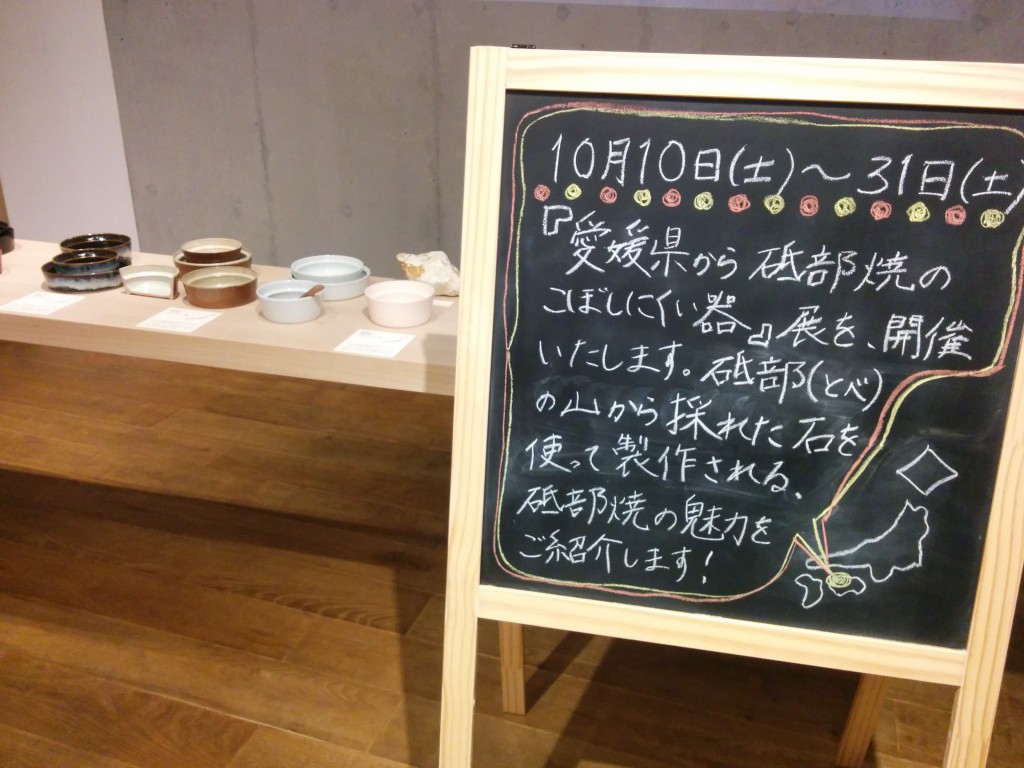 10月10日(土)〜31日(土)
『愛媛県から砥部焼の
こぼしにくい器』展を、開催
いたします。砥部(とべ)
の山から採れた石を
使って製作される、
砥部焼の魅力を
ご紹介します!